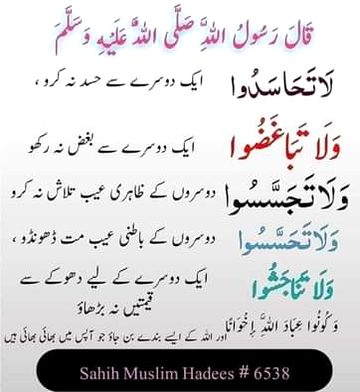 قَالَ رَسُولُ اللهِ صَلَّى اللهُ عَلَيْهِ وَسَلَّمَ
لَا تَحَاسَدُوا ایک دوسرے سے حسد نہ کرو ،
وَلَا تَبَاغَضُوا ایک دوسرے سے بغض نہ رکھو
وَلَا تَجَسَّسُوا دوسروں کے ظاہری عیب تلاش نہ کرو
وَلَا تَحَسَّسُوا دوسروں کے باطنی عیب مت ڈھونڈو ،
وَلَا تَنَاجَشُوا ایک دوسرے کے لیے دھوکے سے
قیمتیں نہ بڑھاؤ
وَكُونُوا عِبَادَ اللهِ إِخْوَانًا
اور اللہ کے ایسے بندے بن جاؤ جو آپس میں بھائی بھائی ہیں
Sahih Muslim Hadees # 6538